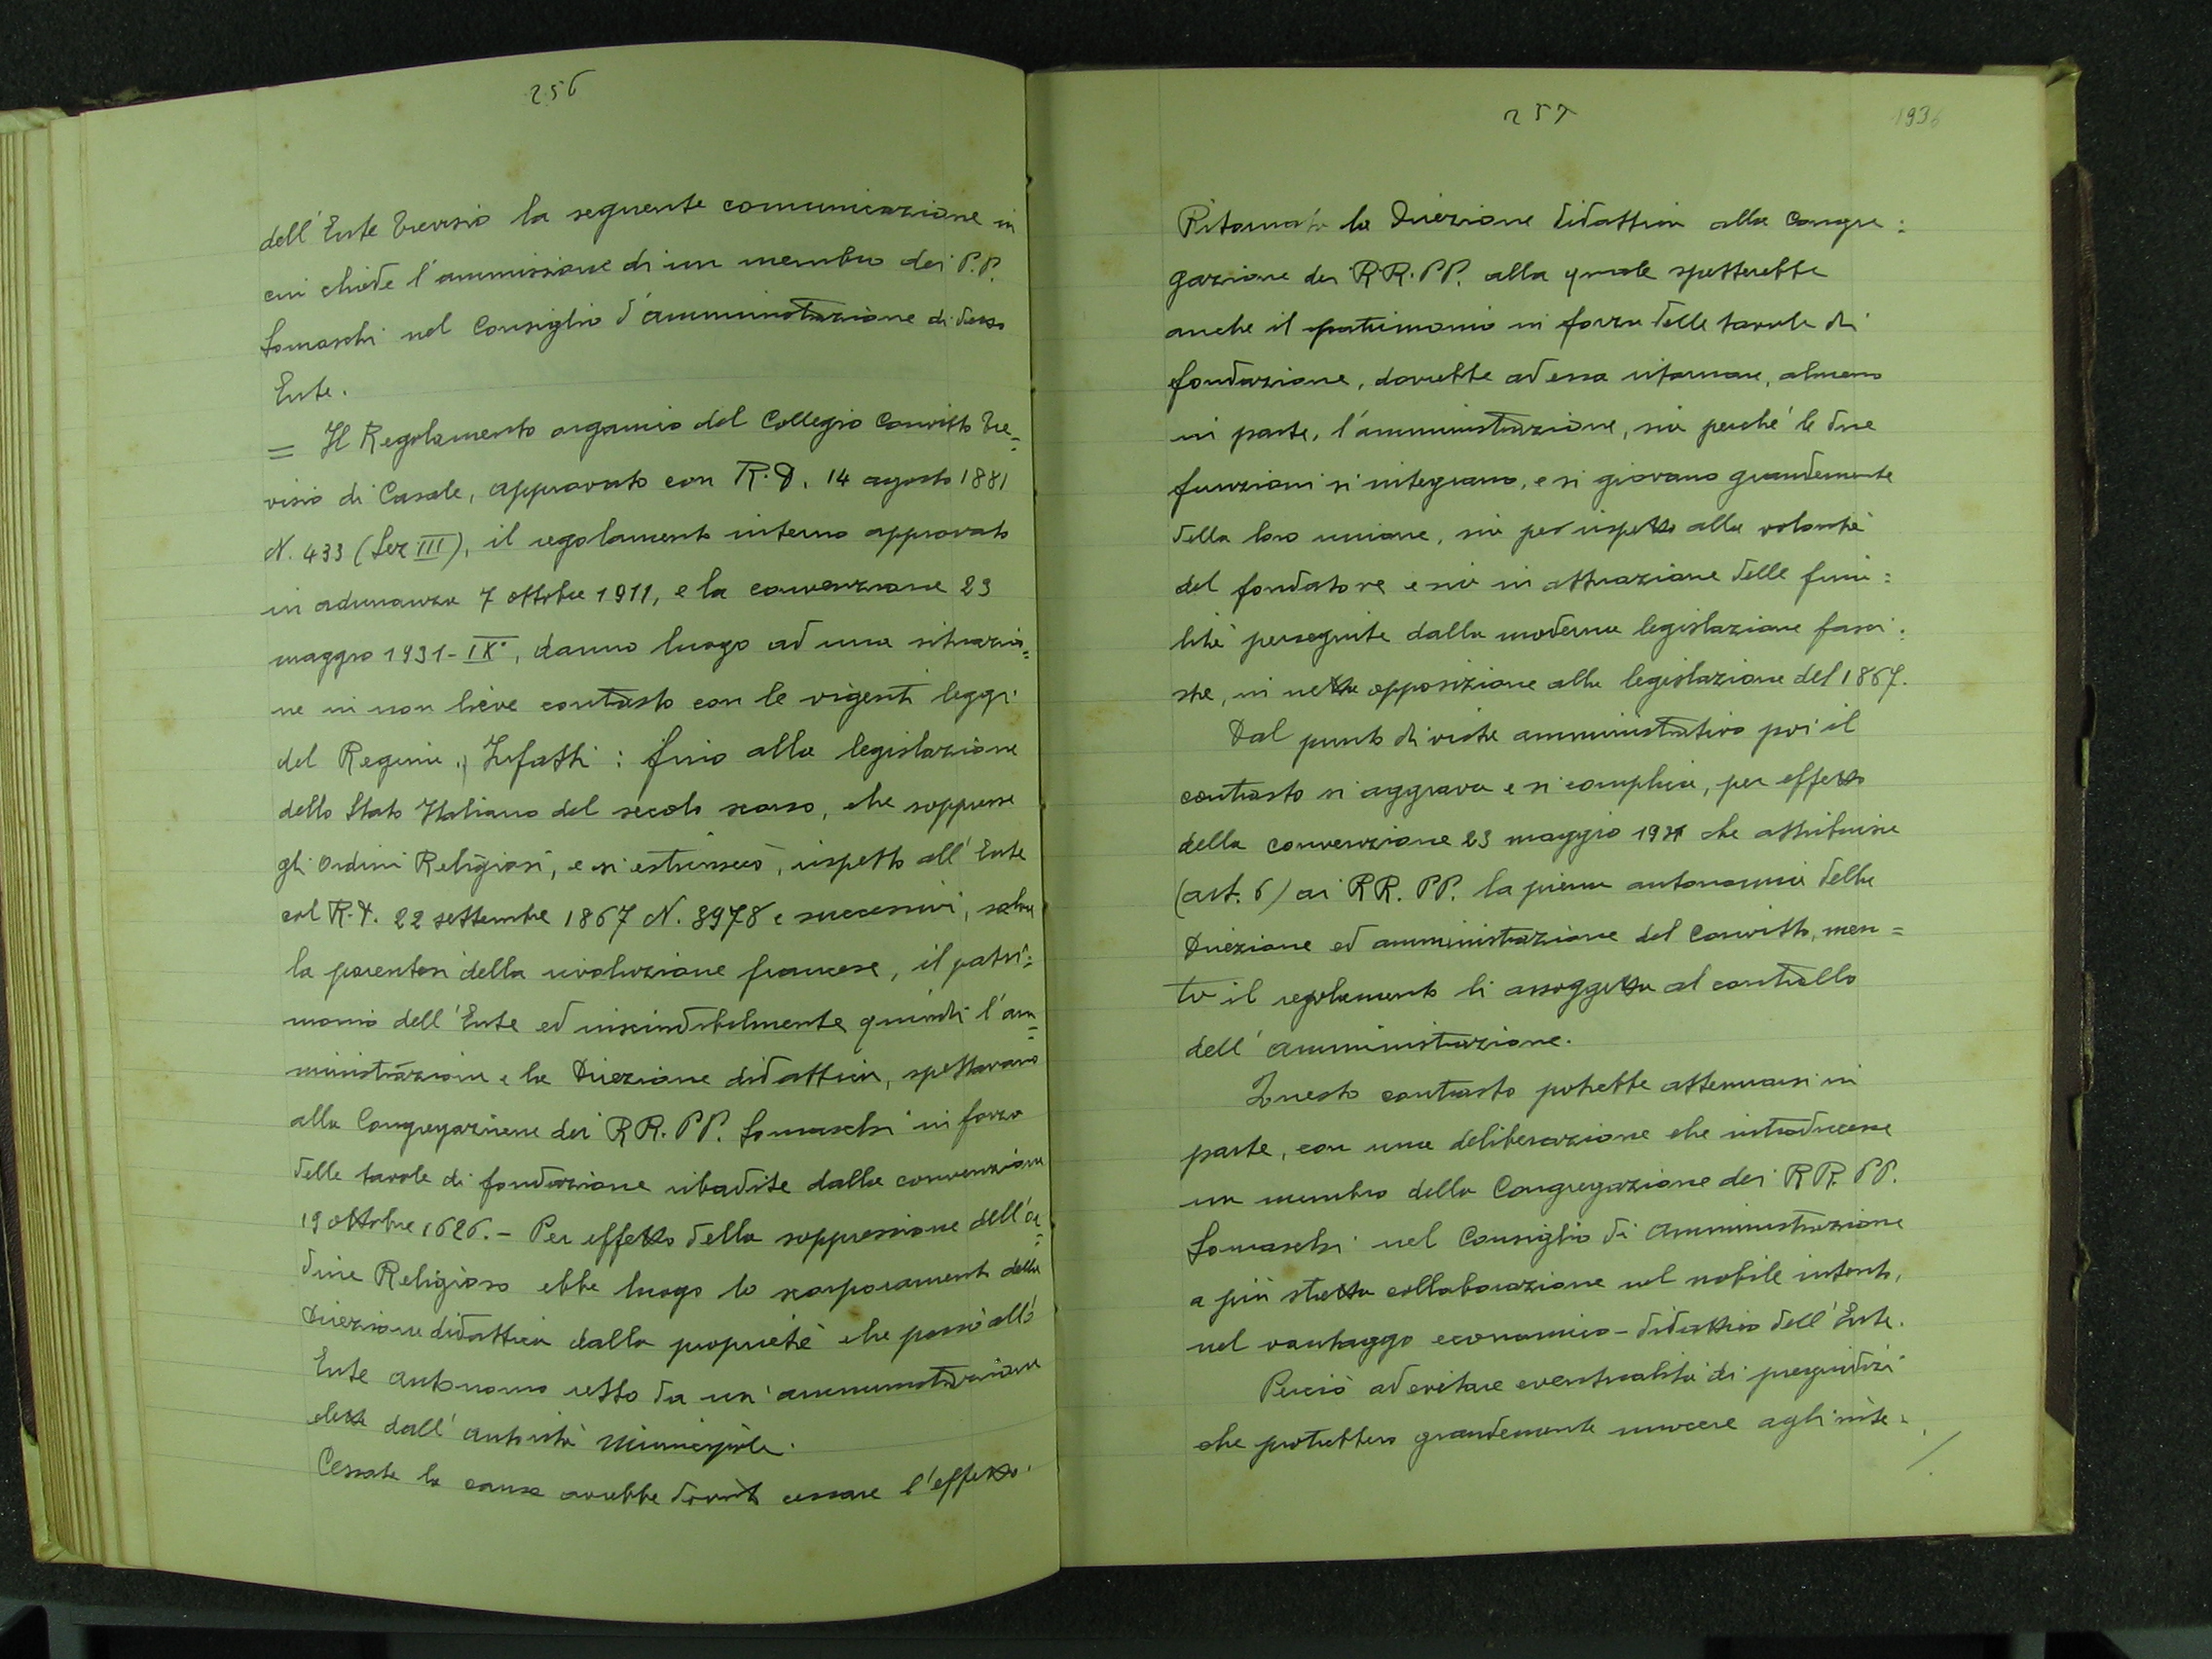 256
dell'Ente Trevisio la seguente comunicazione in
cui chiede l'ammissione di un membro dei P.P.
Somaschi nel Consiglio d'amministrazione di detto
Ente.
= Il Regolamento organico del Collegio Convitto Tre=
visio di Casale, approvato con R.D. 14 agosto 1881
N. 433 (Ser III), il regolamento interno approvato
in adunanza 7 ottobre 1911, e la convenzione 23
maggio 1931-IX°, danno luogo ad una situazio=
ne in non lieve contrasto con le vigenti leggi
del Regime. Infatti: fino alla legislazione
dello Stato Italiano del secolo scorso, che soppresse
gli Ordini Religiosi, e si estrinsecò, rispetto all'Ente
col R.D. 22 settembre 1867 N. 3978 e successivi, salva
la parentesi della rivoluzione francese, il patri=
monio dell'Ente ed inscindibilmente quindi l'am=
ministrazione e la Direzione didattica, spettavano
alla Congregazione dei RR. PP. Somaschi in forza
delle tavole di fondazione ribadite dalla convenzione
19 ottobre 1626. - Per effetto della soppressione dell'Or=
dine Religioso ebbe luogo lo scorporamento della
Direzione didattica dalla proprietà che passò all'
Ente autonomo retto da un'amministrazione
eletta dall'autorità Municipale.
Cessata la causa avrebbe dovuto cessare l'effetto.
257
1936
Ritornata la Direzione didattica alla Congre=
gazione dei RR. PP. alla quale spetterebbe
anche il patrimonio in forza delle tavole di
fondazione, dovrebbe ad essa ritornare, almeno
in parte, l'amministrazione, sia perché le due
funzioni si integrano, e si giovano grandemente
della loro unione, sia per rispetto alla volontà
del fondatore e sia in attuazione delle fina=
lità perseguite dalla moderna legislazione fasci=
sta, in netta opposizione alla legislazione del 1867.
Dal punto di vista amministrativo poi il
contrasto si aggrava e si complica, per effetto
della convenzione 23 maggio 1931 che attribuisce
(art. 6) ai RR. PP. la piena autonomia della
Direzione ed amministrazione del Convitto, men=
tre il regolamento li assoggetta al controllo
dell'amministrazione.
Questo contrasto potrebbe attenuarsi in
parte, con una deliberazione che introducesse
un membro della Congregazione dei RR. PP.
Somaschi nel Consiglio di Amministrazione
a più stretta collaborazione nel nobile intento,
nel vantaggo economico-didattico dell'Ente.
Perciò ad evitare eventualità di pregiudizi
che potrebbero grandemente nuocere agli inte=